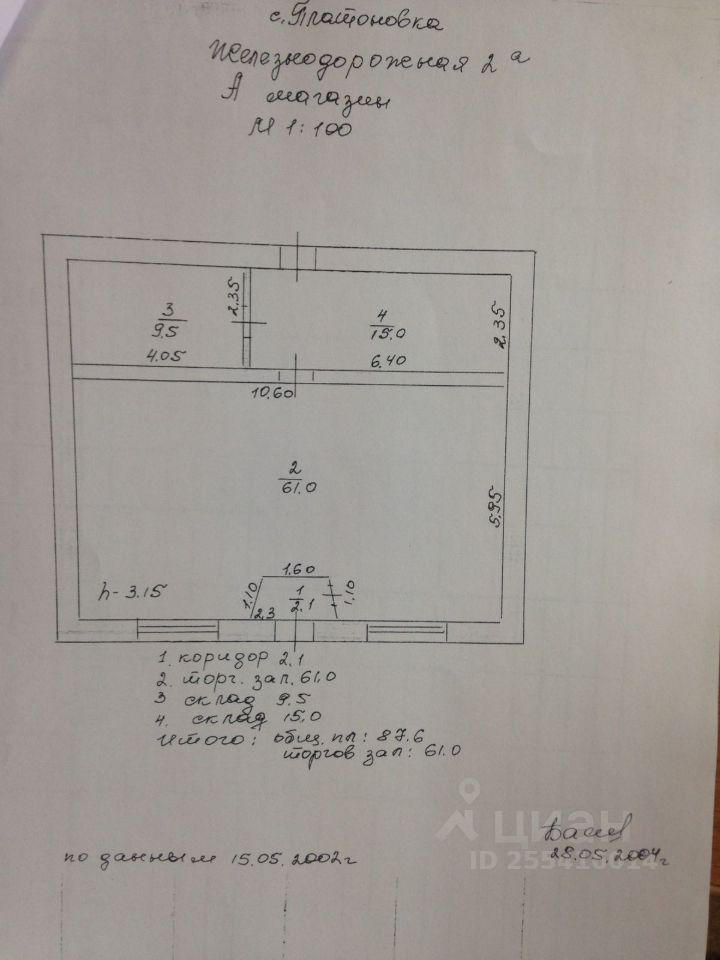 с. Платоновка
Железнодорожная 2а
А магазин
М 1:100
3
9.5
4.05
2.35
4
15.0
6.40
2.35
10.60
2
61.0
5.95
h- 3.15
1.60
1.10
1
2.1
1.10
2.3
1. коридор 2.1
2. торг. зал. 61.0
3 склад 9.5
4. склад 15.0
Итого: общ. пл: 87.6
торгов зал: 61.0
циан
ID 255410014
по данным 15.05.2002г
28.05.2004г